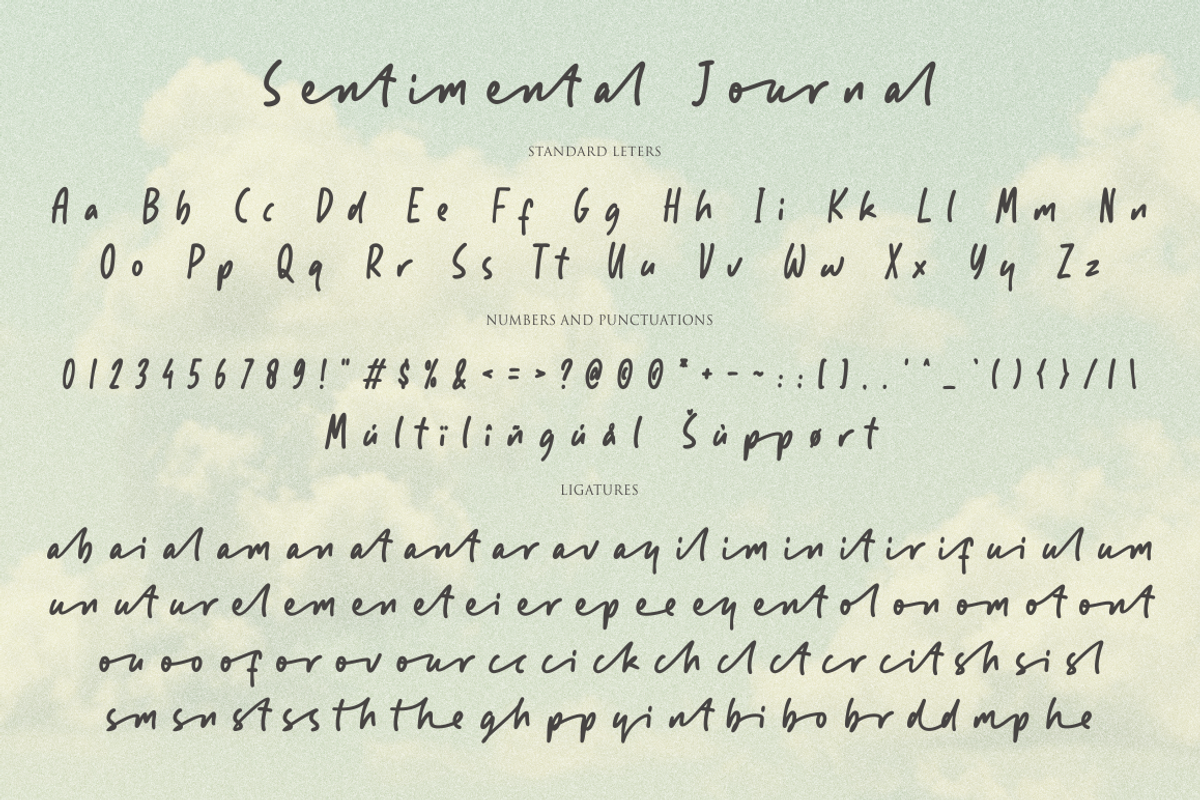 Sentimental Journal
STANDARD LETERS
Aa Bb Cc Dd Ee Ff Gg Hh Ii Kk Ll Mm Nn
Oo Pp Qq Rr Ss Tt Uu Vv Ww Xx Yy Zz
NUMBERS AND PUNCTUATIONS
0 1 2 3 4 5 6 7 8 9 ! " # $ % & < = > ? @ * + - ~ : : [ ] . . ' ^ _ ` ( ) { } / | \
Múltïlîñgúål Šùppørt
LIGATURES
ab ai al am an at ant ar av ay il im in it ir if ui ul um
un ut ur el em en et ei er ep ee ey ent ol on om ot ont
ou oo of or ov our cc ci ck ch cl ct cr cit sh si sl
sm sn st ss th the gh pp yi nt bi bo br dd mp he